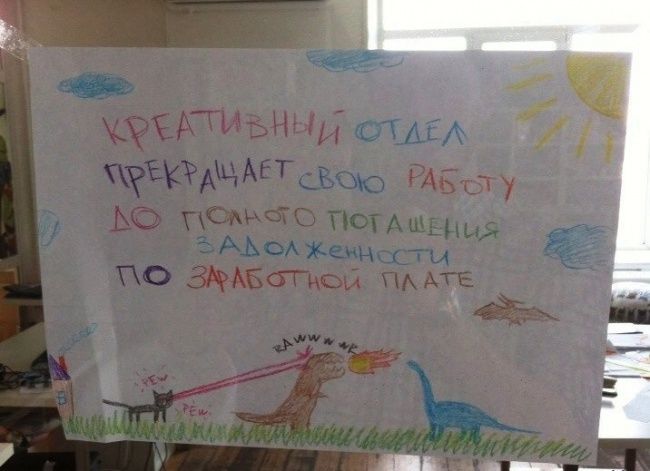 КРЕАТИВНЫЙ ОТДЕЛ
ПРЕКРАЩАЕТ СВОЮ РАБОТУ
ДО ПОЛНОГО ПОГАШЕНИЯ
ЗАДОЛЖЕННОСТИ
ПО ЗАРАБОТНОЙ ПЛАТЕ
RAWWWWR
PEW
PEW